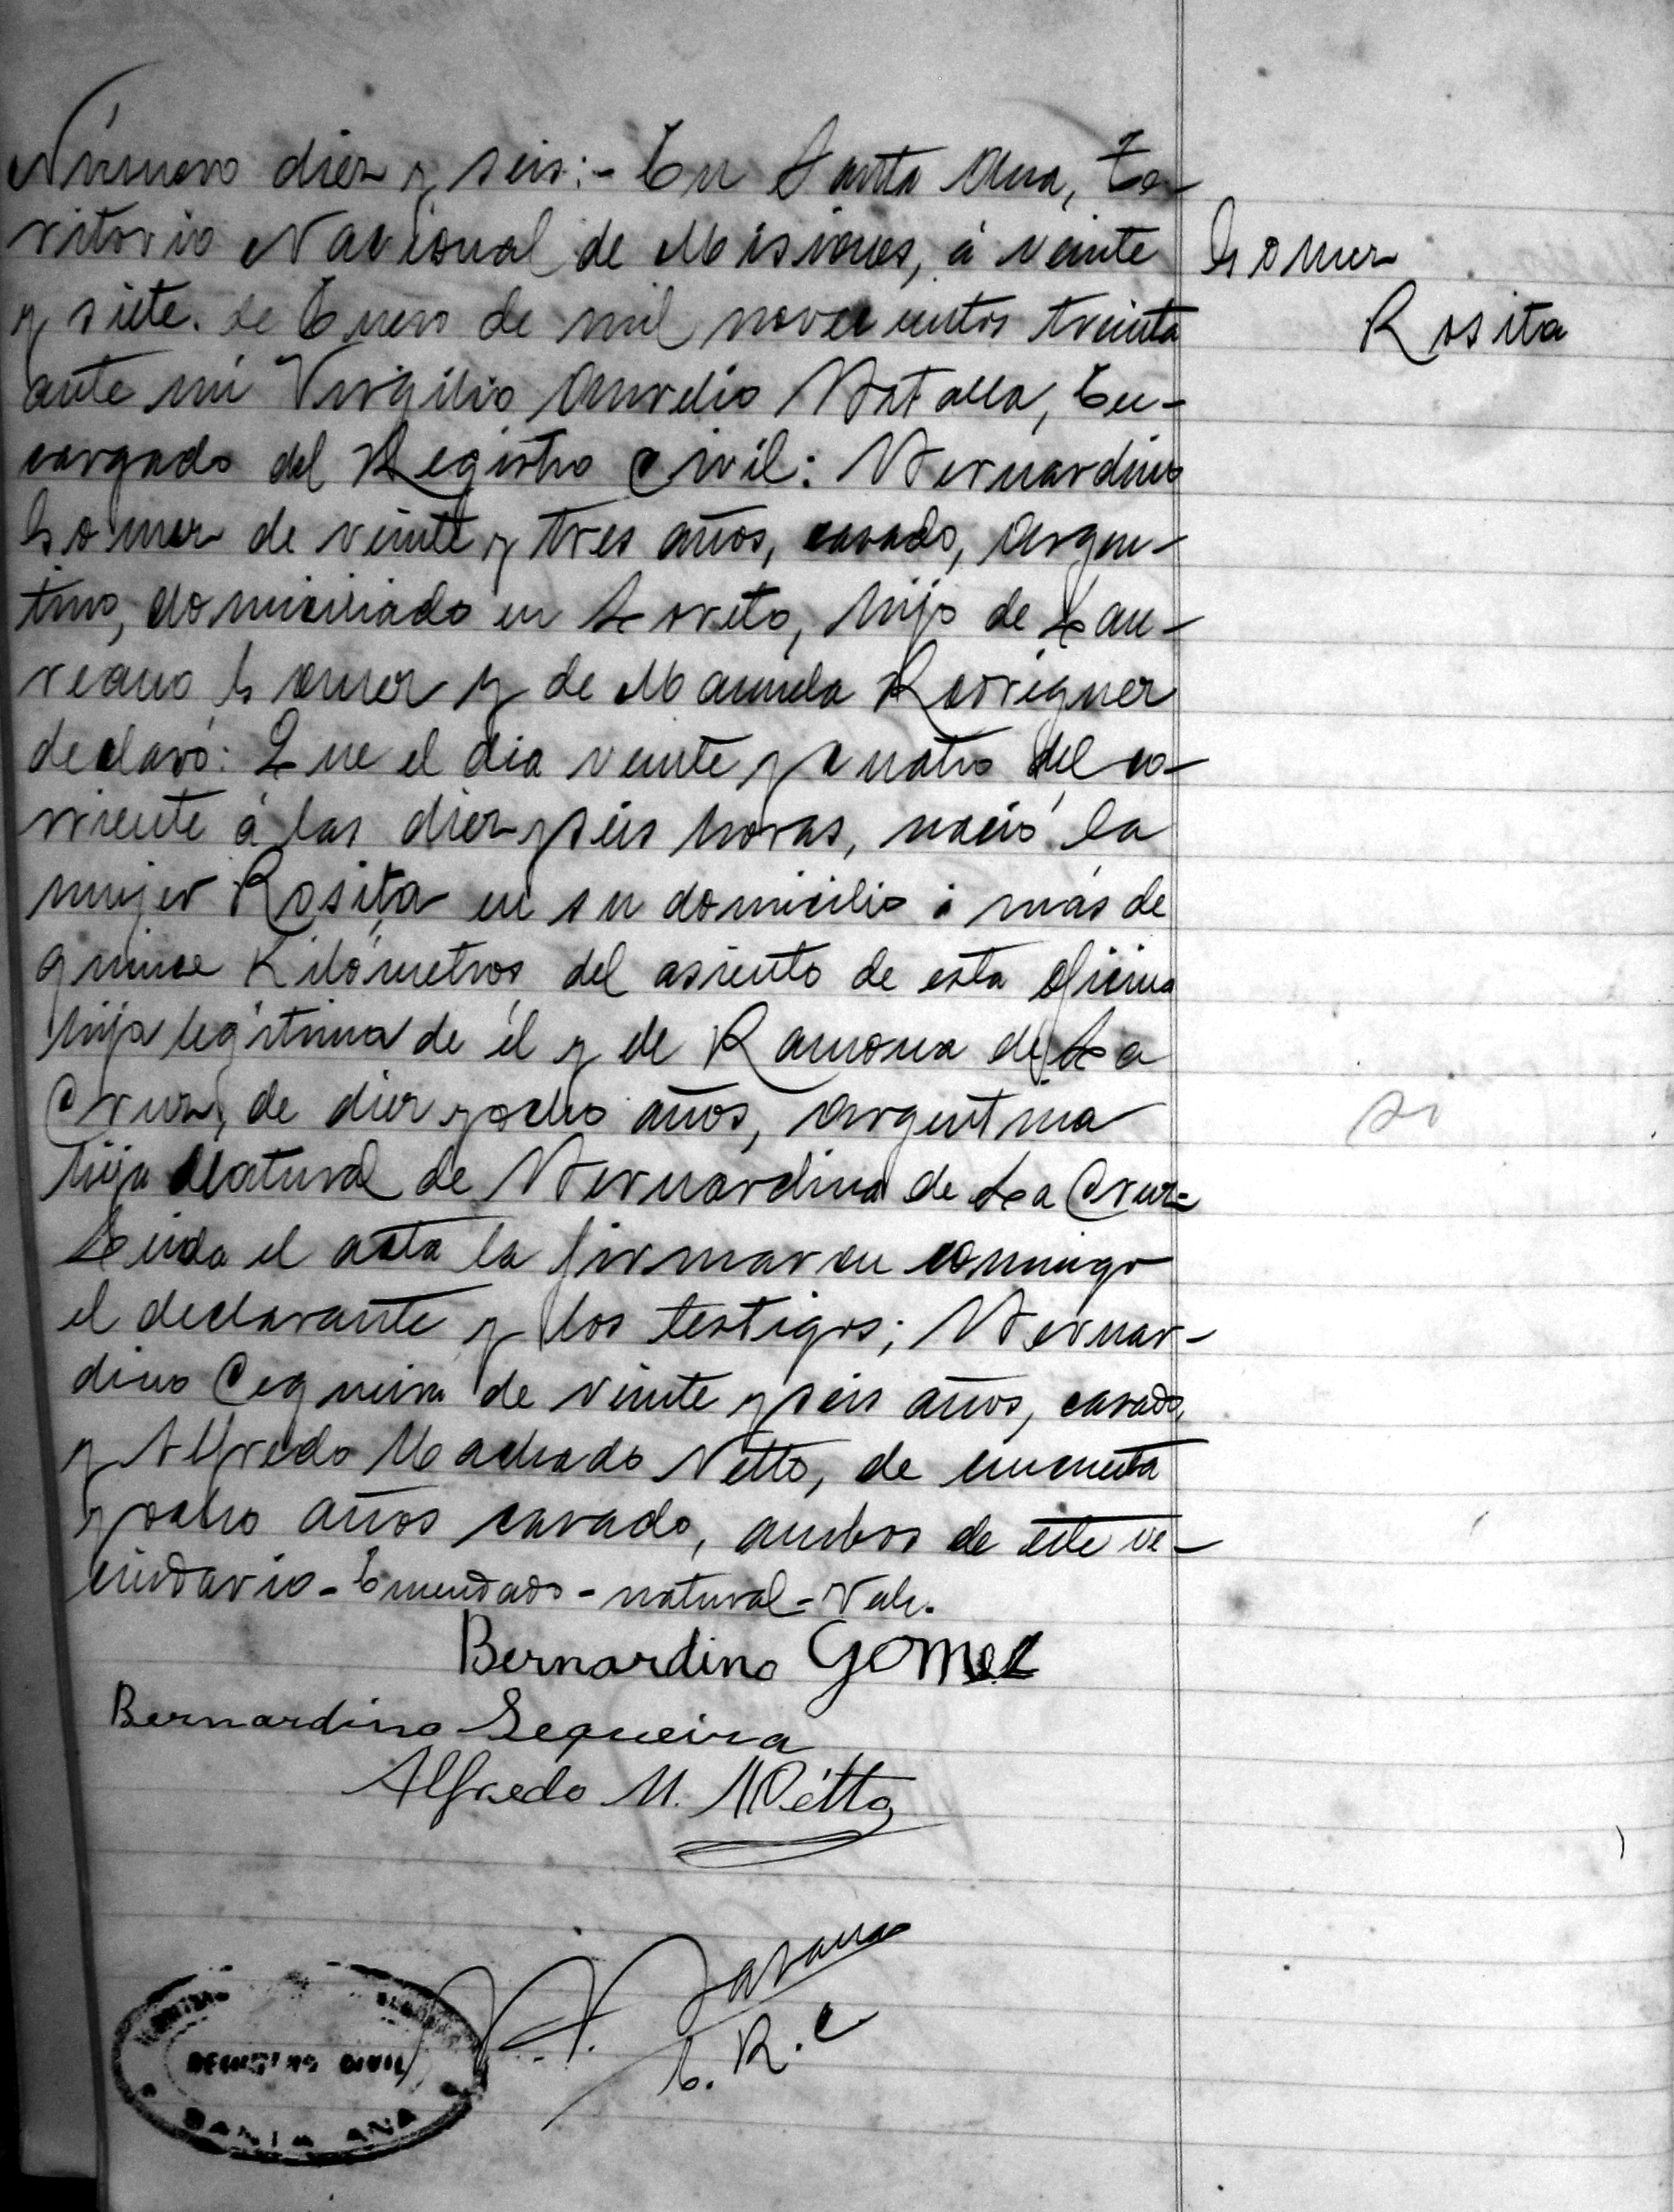 Número diez y seis:- En Santa Ana, Te-
rritorio Nacional de Misiones, á veinte
y siete de Enero de mil novecientos treinta
ante mi Virgilio Aurelio Batalla, En-
cargado del Registro Civil: Bernardino
Gomez de veinte y tres años, casado, Argen-
tino, domiciliado en Loreto, hijo de Lau-
reano Gomez y de Manuela Rodriguez
declaró: Que el dia veinte y cuatro del co-
rriente á las diez y seis horas, nació la
mujer Rosita en su domicilio á más de
quince Kilómetros del asiento de esta oficina
hija legítima de él y de Ramona de La
Cruz, de diez y ocho años, Argentina
hija Natural de Bernardina de La Cruz=
Leida el acta la firmaron conmigo
el declarante y los testigos; Bernar-
dino Cequeira de veinte y seis años, casado,
y Alfredo Machado Netto, de cincuenta
y ocho años casado, ambos de este ve-
cindario-Enmendado-natural-Vale.
Gomez
Rosita
Bernardino Gomez
Bernardino Sequeira
Alfredo M. Nétto
E. R. C
REGISTRO CIVIL
SANTA ANA